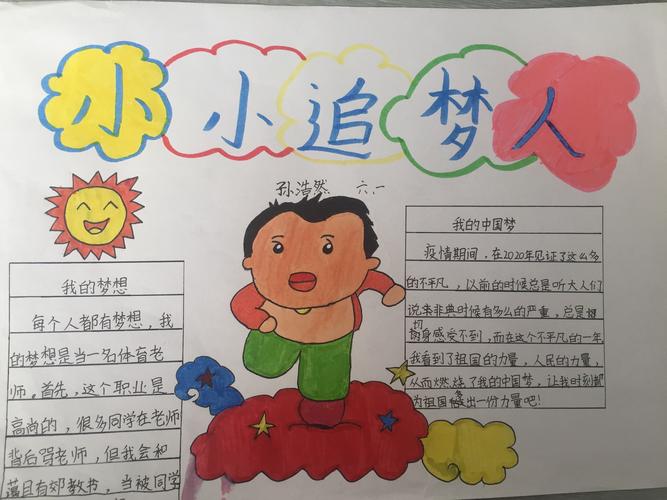 小小追梦人
孙浩然 六.一
我的梦想
每个人都有梦想，我
的梦想是当一名体育老
师。首先，这个职业是
高尚的，很多同学在老师
背后骂老师，但我会和
蔼且有郊教书，当被同学
我的中国梦
疫情期间，在2020年见证了这么多
的不平凡，以前的时候总是听大人们
说来非典时候有多么的严重，总是根
切身感受不到，而在这个不平凡的一年
我看到了祖国的力量，人民的力量，
从而燃烧了我的中国梦，让我时刻都
为祖国 出一份力量吧！